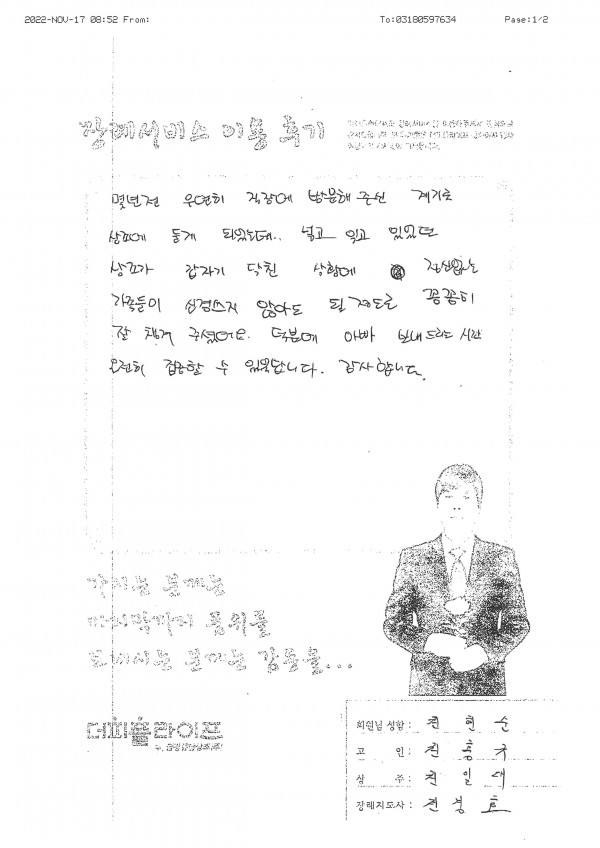 2022-NOV-17 08:52 From: To:03180597634 Page:1/2
장례서비스 이용 후기
몇년전 우연히 직장에 방문해 주신 계기로
상조에 들게 되었는데.. 넣고 잊고 있었던
상조가 갑자기 닥친 상황에 정신없는
가족들이 신경쓰지 않아도 될 정도로 꼼꼼히
잘 챙겨 주셨어요. 덕분에 아빠 보내드리는 시간
온전히 집중할 수 있었답니다. 감사합니다.
가시는 분께는
마지막까지 품위를
보내시는 분께는 감동을...
더피플라이프
회원님 성함 : 현순
고 인 :
상 주 : 일
장례지도사 :